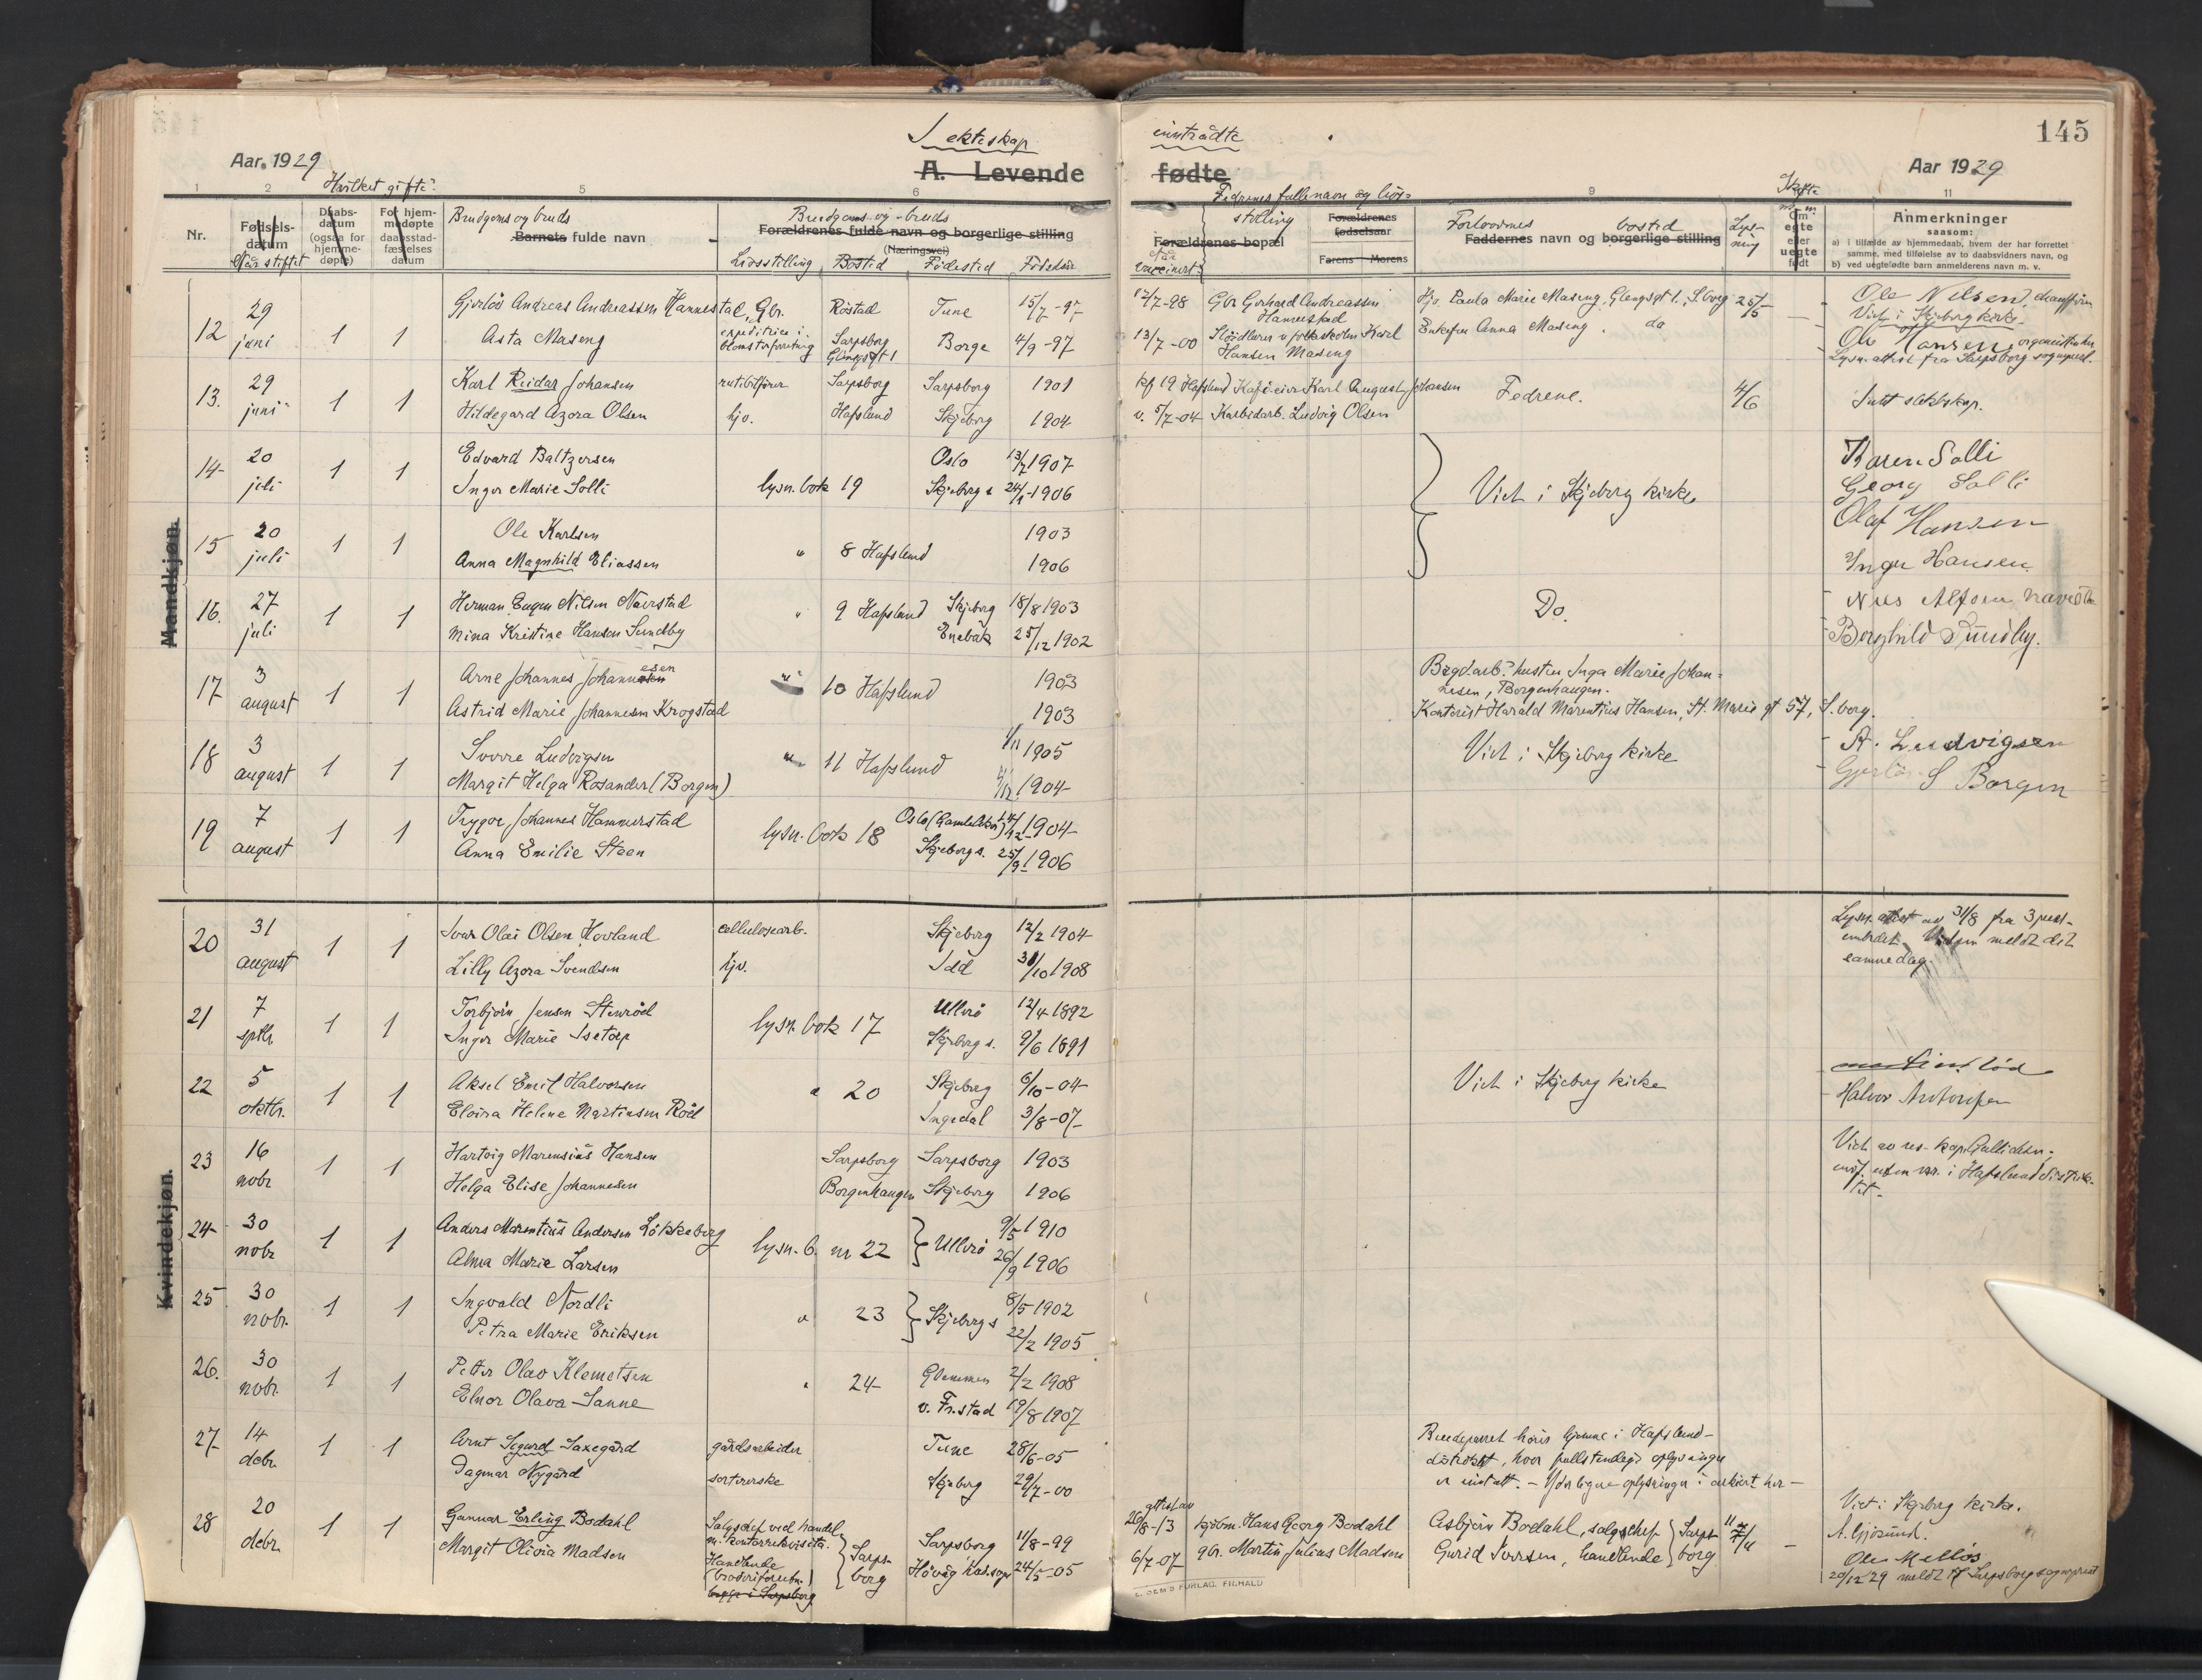 145
I ekteskap inntrådte
Aar 1929
A. Levende fødte
Aar 1929
Hvilket gifte?
1 2 5 6 9 11
Nr.
Fødselsdatum
Når stiftet
Daabsdatum (ogsaa for hjemmedøpte)
For hjemmedøpte daabsstadfæstelses datum
Brudgoms og bruds
Barnets fulde navn
Brudgoms og bruds
Forældrenes fulde navn og borgerlige stilling
(Næringsvei)
Livsstilling Bosted Fødested Fødselsår
Fedrenes fulle navn og livsstilling
Forældrenes bopæl
Når vaccinert?
Forældrenes fødselsaar
Farens Morens
Forlovernes bosted
Faddernes navn og borgerlige stilling
Lysning
Om egte eller uegte født
Anmerkninger
saasom:
a) i tilfælde av hjemmedaab, hvem der har forrettet samme, med tilføielse av to daabsvidners navn, og
b) ved uegtefødte barn anmelderens navn m. v.
Mandkjøn.
12 29 juni 1 1
Gjerløv Andreas Andreassen Hannestad, Gbr. Røstad Tune 15/7-97
12/7-98 Gbr Gerhard Andreassen Hannestad
Hjv. Paula Marie Maseng, Glengsgt 1, S.borg 25/5
Ole Nilsen, chauffør
Viet i Skjeberg kirke.
Asta Maseng
expeditrice i blomsterforretning Sarpsborg Glengsgt 1 Borge 4/9-97
13/7-00 Sløidlærer v folkeskolen Karl Hansen Maseng
Enkefru Anna Maseng. do
Ole Hansen,
Lysn. attest fra Sarpsborg sogneprest.
13. 29 juni 1 1
Karl Reidar Johansen rutebilfører Sarpsborg Sarpsborg 1901
kf 19 Hafslund Kafé-eier Karl August Johansen
Fedrene. 4/6
Intet slektskap.
Hildegard Azora Olsen hjv. Hafslund Skjeberg 1904
v. 5/7-04 Karbidarb. Ludvig Olsen
14 20 juli 1 1
Edvard Baltzersen Oslo 13/7 1907
Inger Marie Solli lysn. bok 19 Skjeberg s 24/1-1906
Viet i Skjeberg kirke
Karen Solli
Georg Solli
15 20 juli 1 1
Ole Karlsen 1903
Anna Magnhild Eliassen " 8 Hafslund 1906
Olaf Hansen
Inga Hansen
16. 27 juli 1 1
Herman Eugen Nilsen Naverstad " 9 Hafslund Skjeberg 18/8 1903
Nina Kristine Hansen Sundby Enebak 25/12 1902
Do.
Borghild Sundby.
17 3 august 1 1
Arne Johannes Johannesen 1903
" 10 Hafslund
Astrid Marie Johannesen Krogstad 1903
hustru Inga Marie Johannesen, Borgenhaugen.
Kontorist Harald Marentius Hansen, St. Marie gt 57, S. borg.
18 3 august 1 1
Sverre Ludvigsen 1905
" 11 Hafslund
Margit Helga Rosander (Borgen) 1904
Viet i Skjeberg kirke
A. Ludvigsen
S Borgen
19 7 august 1 1
Trygve Johannes Hammerstad 1904
lysn. bok 18
Anna Emilie Steen Skjeberg s. 25/9 1906
Kvindekjøn.
20 31 august 1 1
Ivar Olai Olsen Hovland cellulosearb. Skjeberg 12/2 1904
Lilly Azora Svendsen hjv. Idd 31/10 1908
Lysn. attest av 31/8 fra
meldt dit samme dag.
21 7 sptbr 1 1
Torbjørn Jensen Stenrød Ullerø 12/4 1892
lysn. bok 17
Inger Marie Isetorp Skjeberg s. 2/6 1891
22 5 oktbr. 1 1
Aksel Emil Halvorsen " 20 Skjeberg 6/10-04
Elvira Helene Martinsen Röd Ingedal 3/8-07
Viet i Skjeberg kirke
Halvor Antonsen
23 16 nobr 1 1
Hartvig Marensius Hansen Sarpsborg Sarpsborg 1903
Helga Elise Johannesen Borgenhaugen Skjeberg 1906
Viet av res. kap. i Hafslund distriktet.
24 30 nobr 1 1
Anders Marentius Andersen Løkkeberg 9/5 1910
lysn. b. nr 22 Ullerø
Alma Marie Larsen 26/9 1906
25 30 nobr. 1 1
Ingvald Nordli 8/5 1902
" 23 Skjeberg s
Petra Marie Eriksen 22/2 1905
26. 30 nobr. 1 1
Petter Olav Klemetsen Glemmen 2/2 1908
" 24
Elnor Olava Sanne v. Fr.stad 19/8 1907
27 14 debr. 1 1
Arnt Sigurd Saxegård gårdsarbeider Tune 28/6-05
Dagmar Nygård sorterske Skjeberg 29/7-00
Brudeparret hører hjemme i Hafslund-distriktet, hvor fullstendige oplysninger er inntatt. - Yderligere oplysninger i arkivet her -
28 20 debr. 1 1
Gunnar Erling Bodahl Salgschef ved handel m. kontorrekvisita. Sarpsborg Sarpsborg 11/8-99
attest av 26/8-13 kjøbm. Hans Georg Bodahl
Asbjørn Bodahl, salgschef Sarpsborg
Viet i Skjeberg kirke.
Margit Olivia Madsen Handlende (broderiforretn.) Høvåg 24/5-05
6/7-07 gbr. Martin Julius Madsen
Gurid Iversen, handlende
20/12 29 meldt til Sarpsborg sogneprest
E. SEM'S FORLAG. FR.HALD